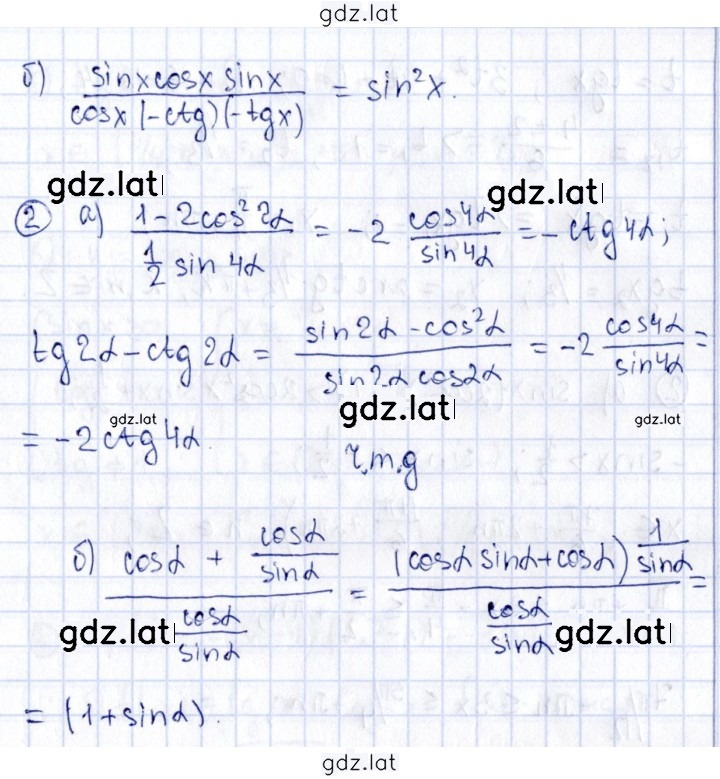 gdz.lat
б) (sinxcosx sinx)/(cosx(-ctg)(-tgx)) = sin²x.
gdz.lat gdz.lat
② а) (1-2cos²2α)/(1/2 sin 4α) = -2 cos4α/sin4α = -ctg4α;
tg2α-ctg2α = (sin2α-cos²α)/(sin2αcos2α) = -2 cos4α/sin4α =
gdz.lat gdz.lat gdz.lat
= -2ctg4α. ч.т.g
б) (cosα + cosα/sinα)/(cosα/sinα) = ((cosα sinα+cosα) 1/sinα)/(cosα/sinα) =
gdz.lat gdz.lat
= (1+sinα).
gdz.lat